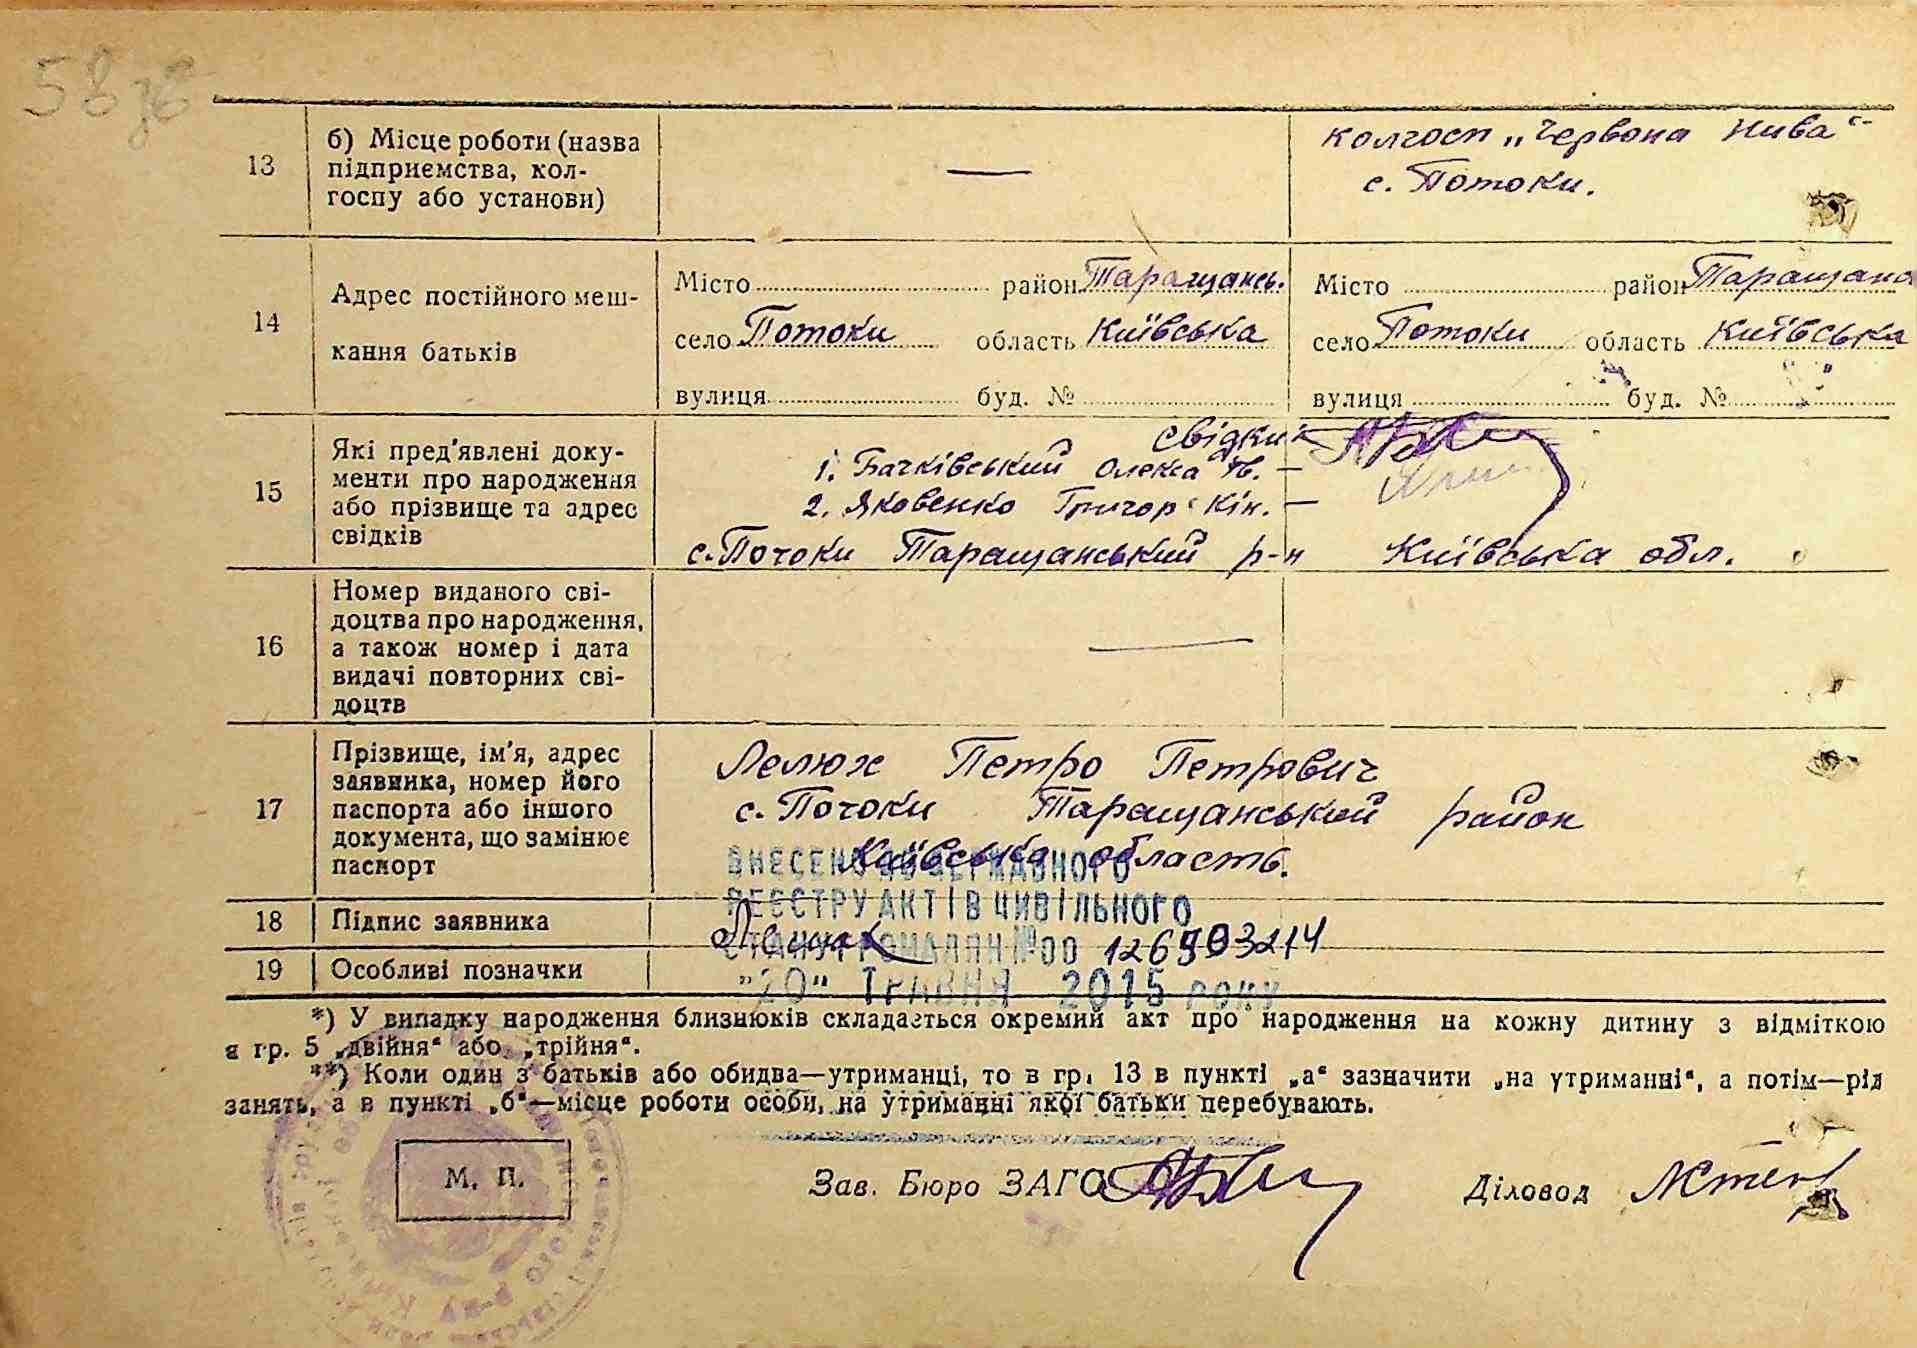 58 зв
13
б) Місце роботи (назва
підприємства, кол-
госпу або установи)
—
колгосп „Червона Нива“
с. Потоки.
14
Адрес постійного меш-
кання батьків
Місто район Таращансь.
село Потоки область Київська
вулиця буд. №
Місто район Таращанс
село Потоки область Київська
вулиця буд. №
15
Які пред'явлені доку-
менти про народження
або прізвище та адрес
свідків
Свідки
1. Бачківський Олекса —
2. Яковенко Григор Кін. —
с. Потоки Таращанський р-н Київська обл.
16
Номер виданого сві-
доцтва про народження,
а також номер і дата
видачі повторних сві-
доцтв
—
17
Прізвище, ім'я, адрес
заявника, номер його
паспорта або іншого
документа, що замінює
паспорт
Лелюх Петро Петрович
с. Потоки Таращанський район
Київська область.
ВНЕСЕНО ДО ДЕРЖАВНОГО
РЕЄСТРУ АКТІВ ЦИВІЛЬНОГО
СТАНУ ГРОМАДЯН № 00
"20" ТРАВНЯ 2015 РОКУ
18
Підпис заявника
19
Особливі позначки
*) У випадку народження близнюків складається окремий акт про народження на кожну дитину з відміткою
в гр. 5 „двійня“ або „трійня“.
**) Коли один з батьків або обидва—утриманці, то в гр. 13 в пункті „а“ зазначити „на утриманні“, а потім—рід
занять, а в пункті „б“—місце роботи особи, на утриманні якої батьки перебувають.
М. П.
Зав. Бюро ЗАГС
Діловод